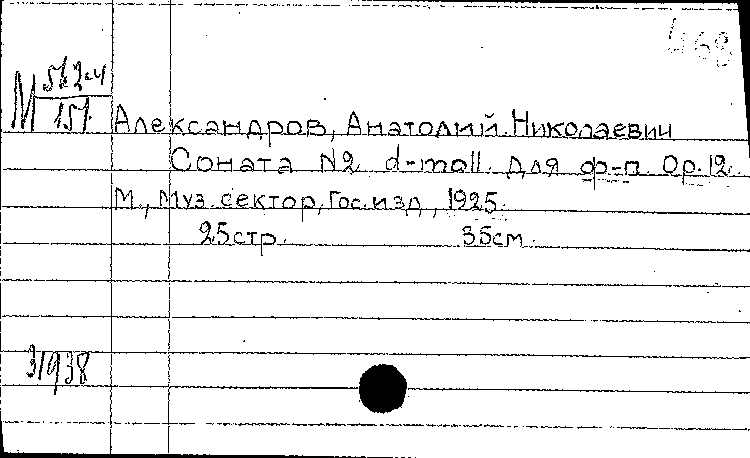 468
М 512-4
151
Александров, Анатолий Николаевич
Соната №2 d-moll. для ф-п. Op.12.
М., Муз. сектор, Гос. изд., 1925.
25стр. 35см.
31938